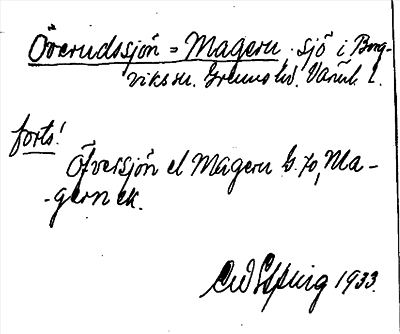 Överudssjön = Magern sjö i Borg-
viks sn. Grums hd. Värml. l.
forts!
Öfversjön el Magern G. 70, Ma-
-gern ek.
1933.